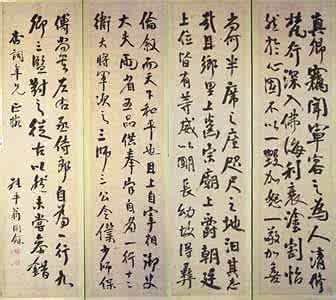 真卿竊聞軍容之為人清修
梵行深入佛海利衰塗割恬
然於心固不以一毀加怒一敬加喜
尚何半席之座咫尺之地汩其志
哉且鄉里上齒宗廟上爵朝廷
上位皆有等威以明長幼故得彝
倫敘而天下和平也且上自宰相御史
大夫兩省五品供奉官自為一行十二
衛大將軍次之三師三公令僕少師保
傅尚書左右丞侍郎自為一行九
卿三監對之從古以然未嘗參錯
年兄正
平翁同龢